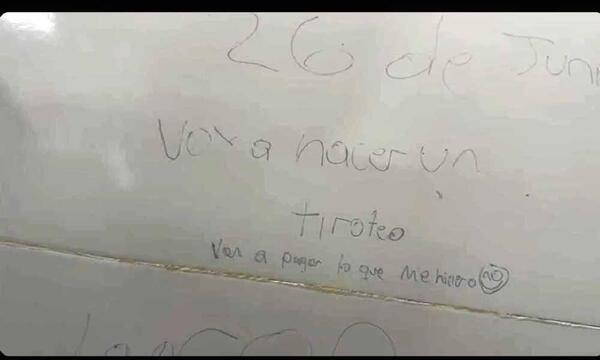 26 de Juni
Voy a hacer un
tiroteo
Van a pagar lo que me hiciero